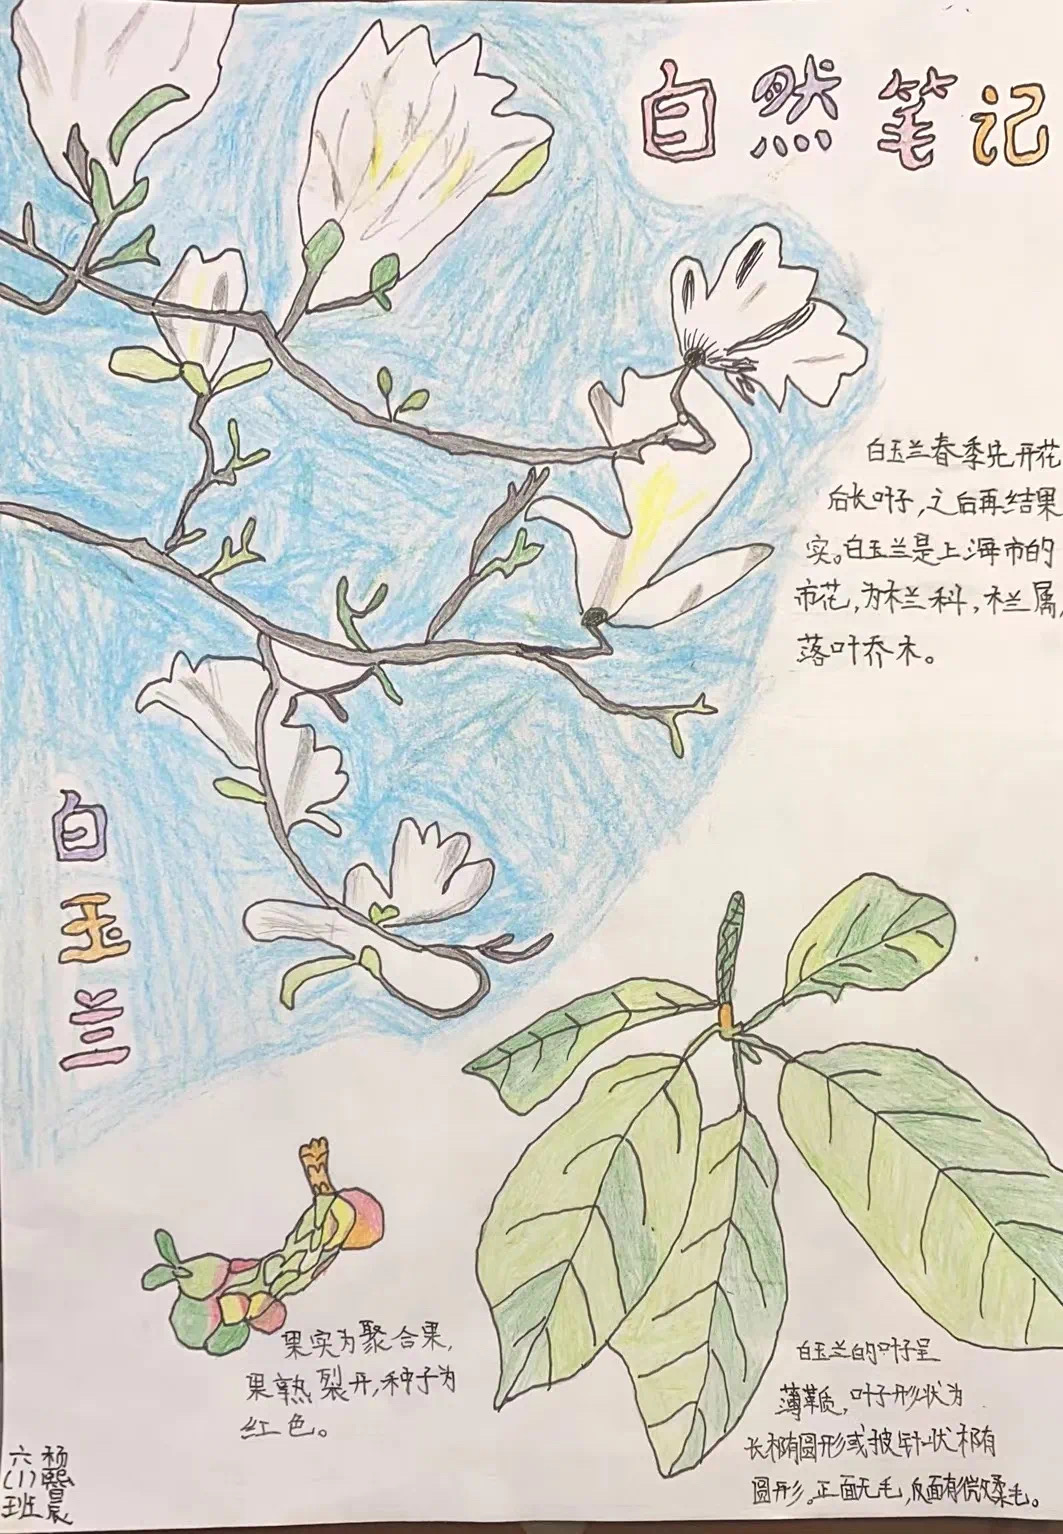 自然笔记
白玉兰春季先开花
后长叶子,之后再结果
实。白玉兰是上海市的
市花,为栏科,栏属,
落叶乔木。
白玉兰
果实为聚合果,
果熟裂开,种子为
红色。
白玉兰的叶子呈
薄革质,叶子形状为
长椭圆形或披针状椭
圆形。正面无毛,反面有微柔毛。
六(1)班
杨熙晨